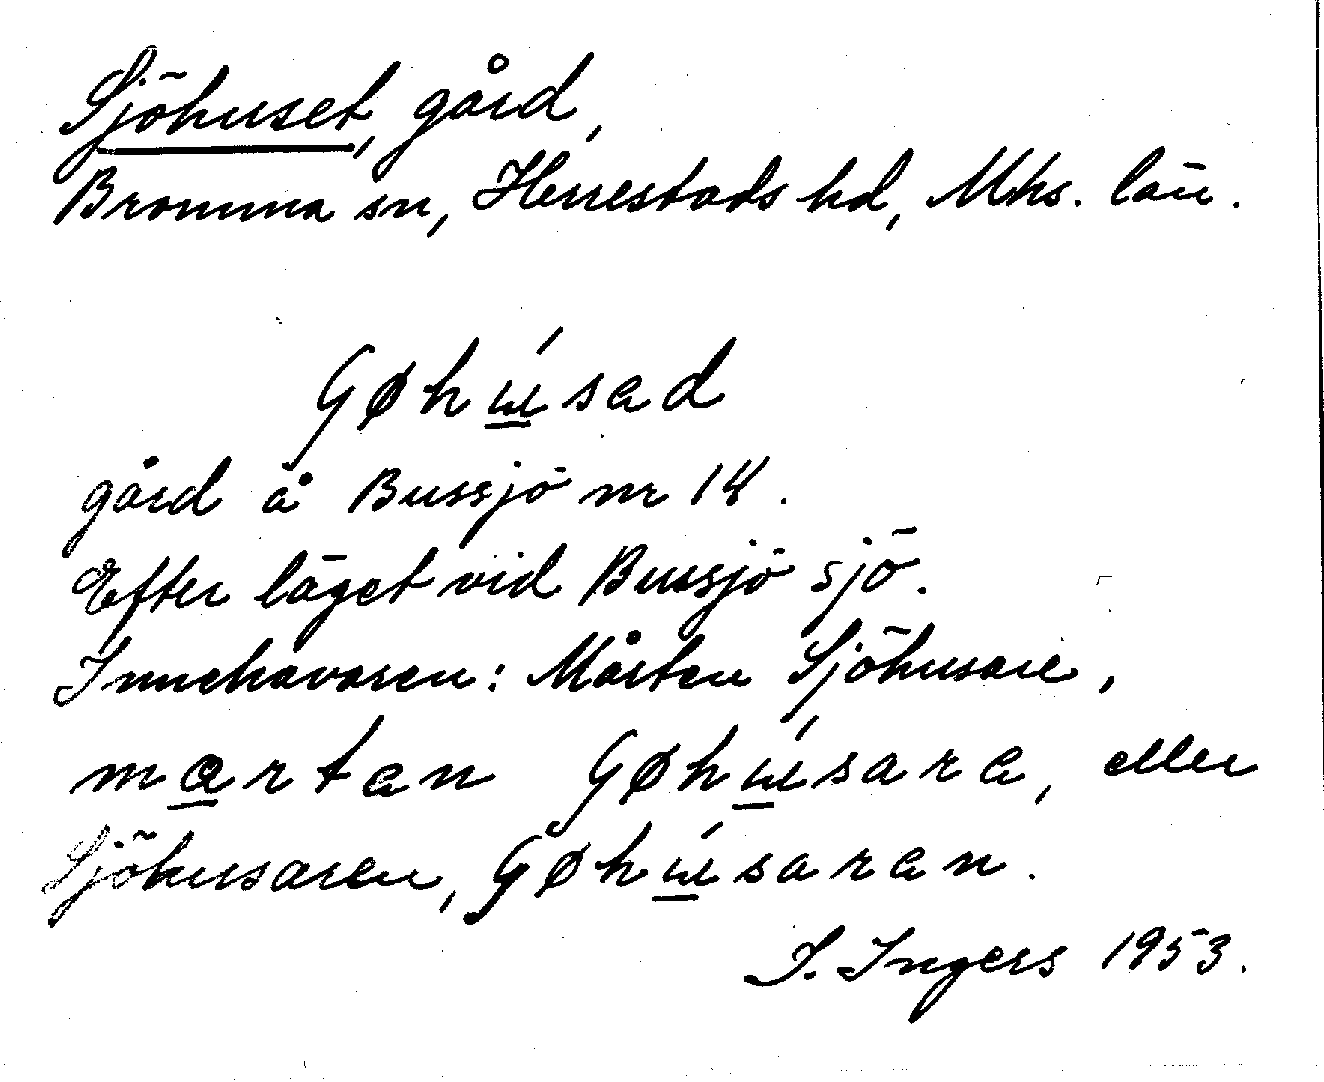 Sjöhuset, gård,
Bromma sn, Herrestads hd, Mhs. län.
Gøhɯ̲́sad
gård å Bussjö nr 14.
Efter läget vid Bussjö sjö.
Innehavaren: Mårten Sjöhusare,
mɑ̲rtan Gøhɯ̲́sara, eller
Sjöhusaren, Gøhɯ̲́saran.
I. Ingers 1953.